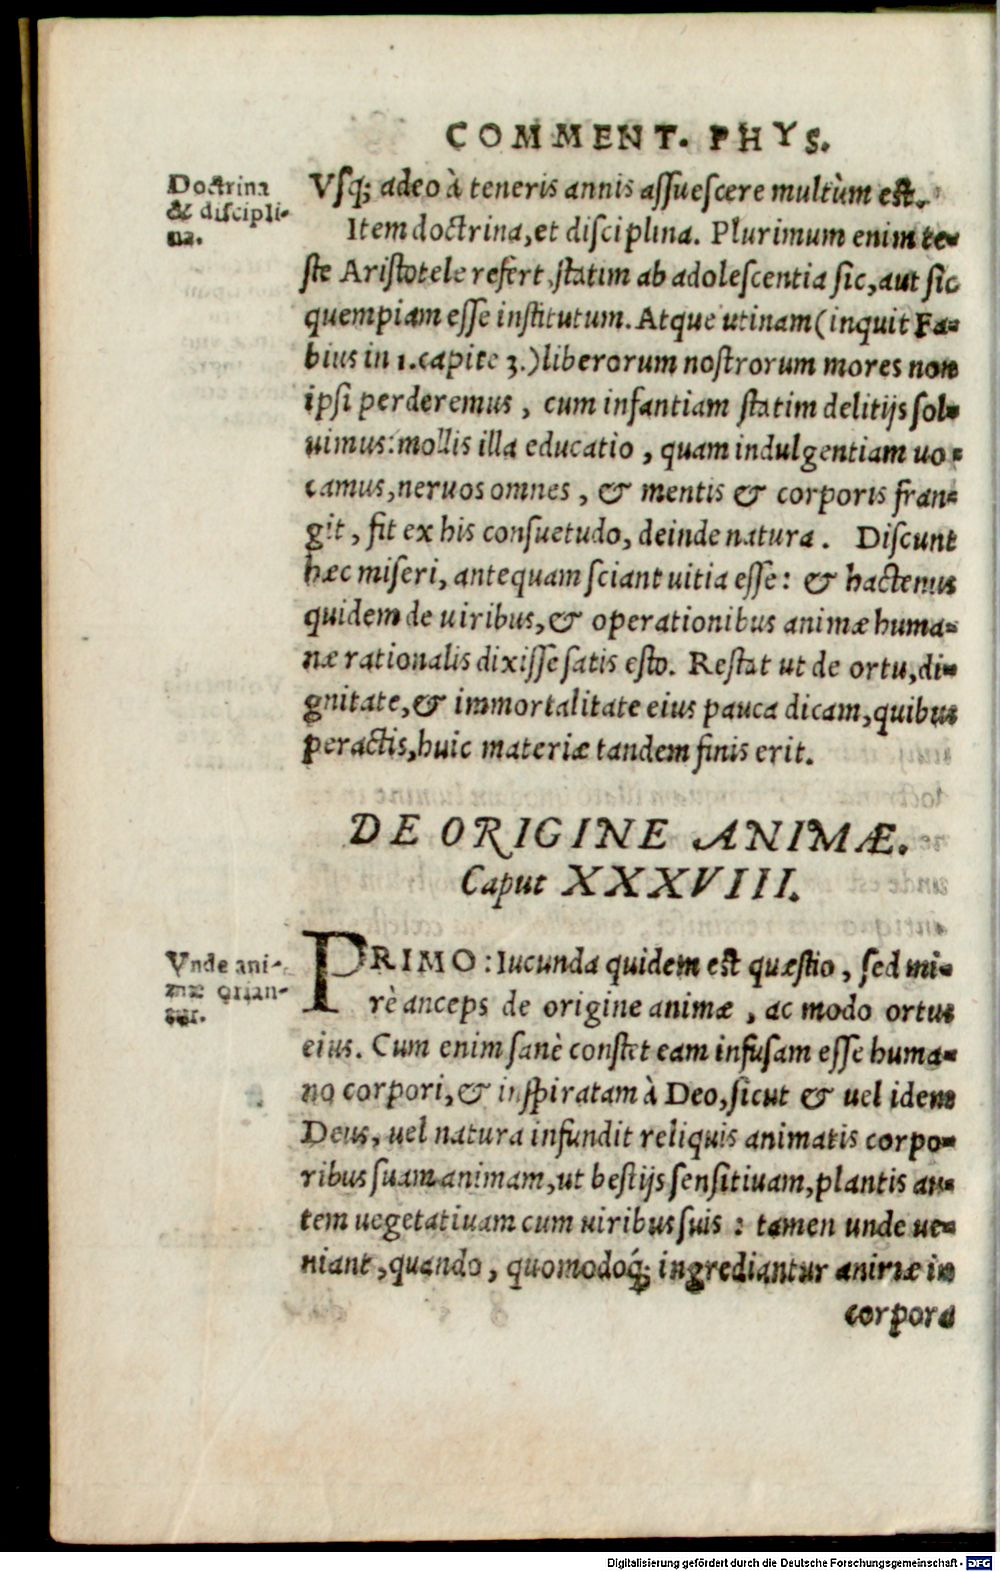 COMMENT. PHYS.
Doctrina
& discipli-
na.
Vsq; adeo à teneris annis assuescere multùm est.
Item doctrina, et disciplina. Plurimum enim te-
ste Aristotele refert, statim ab adolescentia sic, aut sic
quempiam esse institutum. Atque utinam (inquit Fa-
bius in 1. capite 3.) liberorum nostrorum mores non
ipsi perderemus, cum infantiam statim delitijs sol-
uimus: mollis illa educatio, quam indulgentiam uo-
camus, neruos omnes, & mentis & corporis fran-
git, fit ex his consuetudo, deinde natura. Discunt
hæc miseri, antequam sciant uitia esse: & hactenus
quidem de uiribus, & operationibus animæ huma-
næ rationalis dixisse satis esto. Restat ut de ortu, di-
gnitate, & immortalitate eius pauca dicam, quibus
peractis, huic materiæ tandem finis erit.
DE ORIGINE ANIMÆ.
Caput XXXVIII.
Vnde ani-
mæ orian-
tur.
PRIMO: Iucunda quidem est quæstio, sed mi-
rè anceps de origine animæ, ac modo ortus
eius. Cum enim sanè constet eam infusam esse huma-
no corpori, & inspiratam à Deo, sicut & uel idem
Deus, uel natura infundit reliquis animatis corpo-
ribus suam animam, ut bestijs sensitiuam, plantis au-
tem uegetatiuam cum uiribus suis: tamen unde ue-
niant, quando, quomodoq́; ingrediantur animæ in
corpora
Digitalisierung gefördert durch die Deutsche Forschungsgemeinschaft - DFG